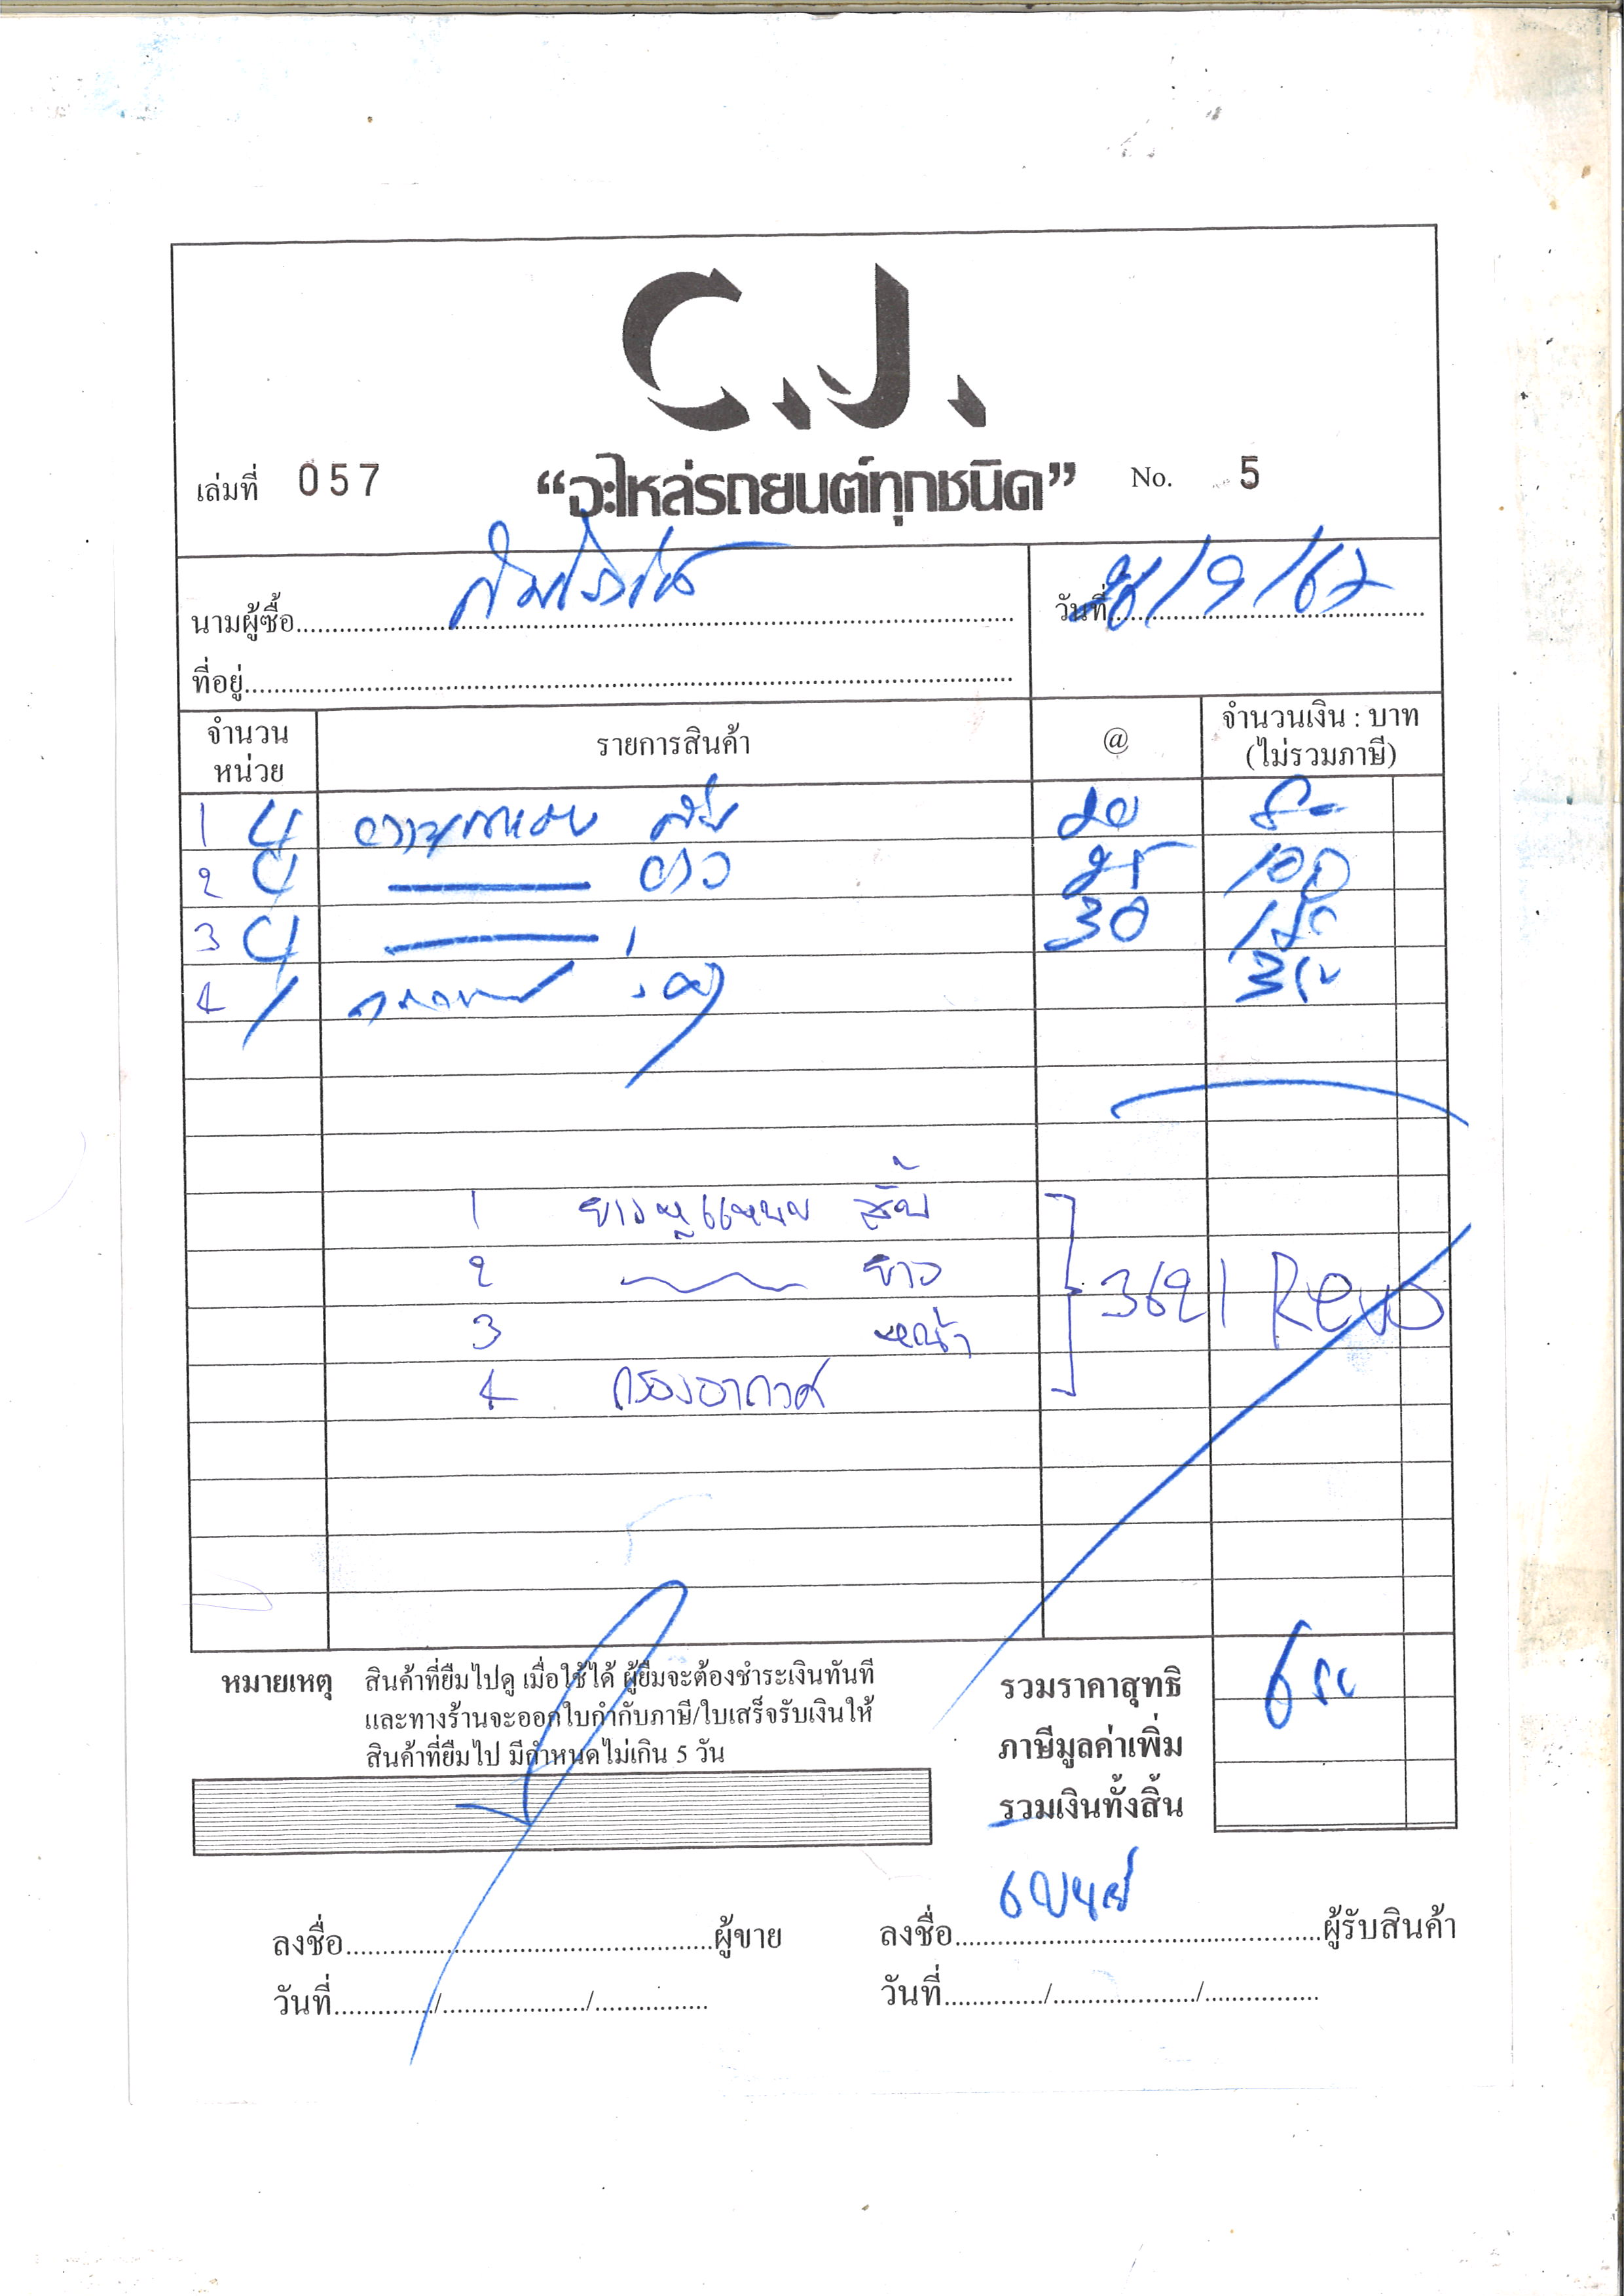 C.J.
เล่มที่ 057 “อะไหล่รถยนต์ทุกชนิด” No. 5
นามผู้ซื้อ วันที่ /9/62
ที่อยู่
จำนวน หน่วย รายการสินค้า @ จำนวนเงิน : บาท (ไม่รวมภาษี)
1 4 สั้น 20 80
2 4 ยาว 25 100
3 4 30 120
4 1 350
1 ยางหูแหนบ สั้น
2 ยาว
3 หน้า
4 กรองอากาศ
3621 Revo
หมายเหตุ สินค้าที่ยืมไปดู เมื่อใช้ได้ ผู้ยืมจะต้องชำระเงินทันที
และทางร้านจะออกใบกำกับภาษี/ใบเสร็จรับเงินให้
สินค้าที่ยืมไป มีกำหนดไม่เกิน 5 วัน
รวมราคาสุทธิ 650
ภาษีมูลค่าเพิ่ม
รวมเงินทั้งสิ้น
ลงชื่อ ผู้ขาย ลงชื่อ ผู้รับสินค้า
วันที่ / / วันที่ / /